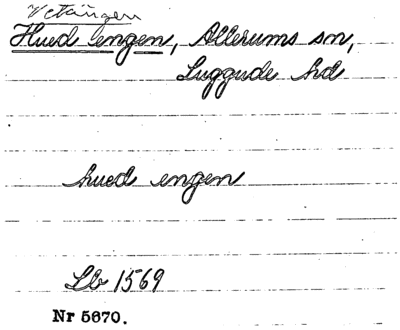 Vetängen
Hued engen, Allerums sn,
Luggude hd
hued engen
Lb 1569
Nr 5670.